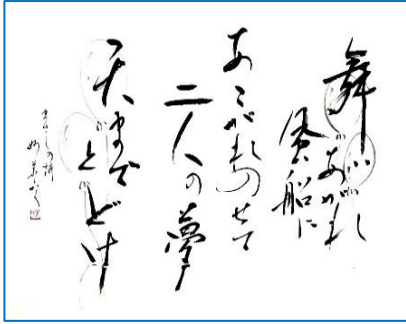 舞いあがれ
風船に
あこがれのせて
二人の夢
天まで
とどけ